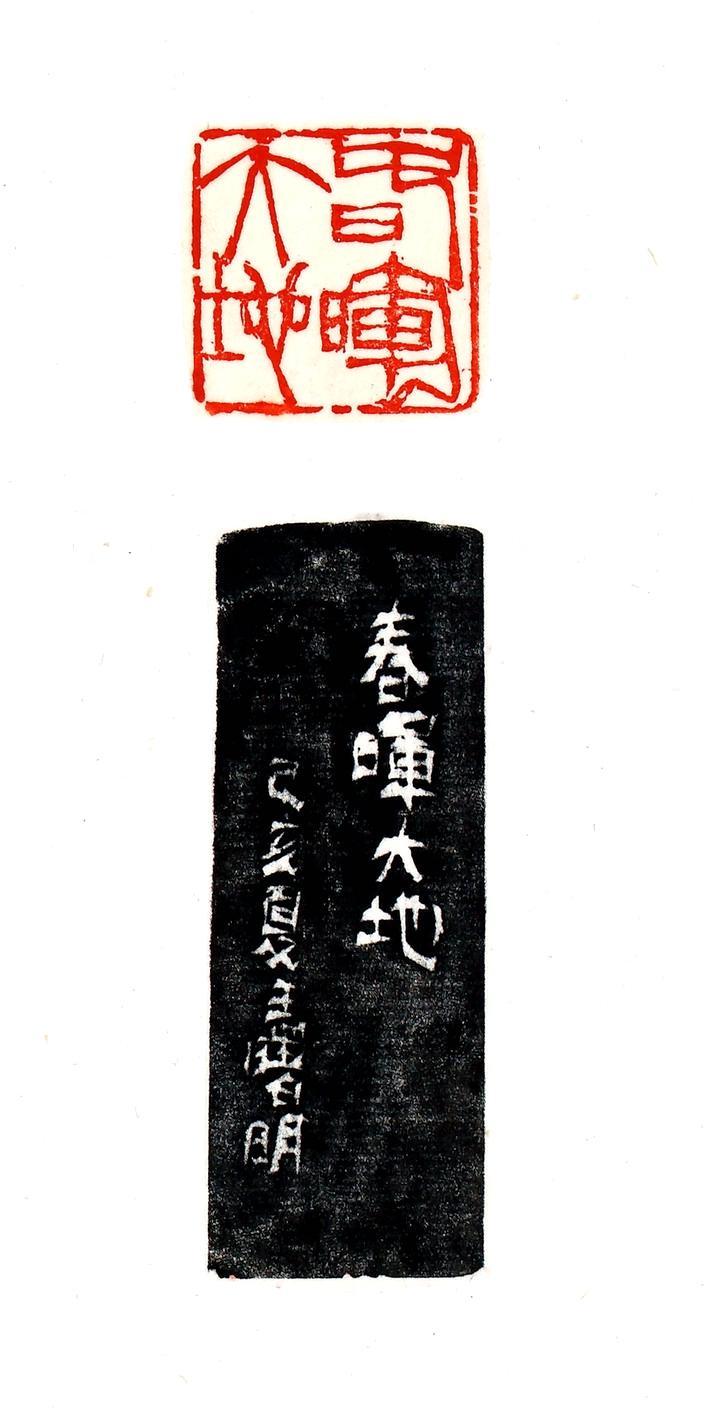 春暉
大地
春暉大地
己亥夏文
明